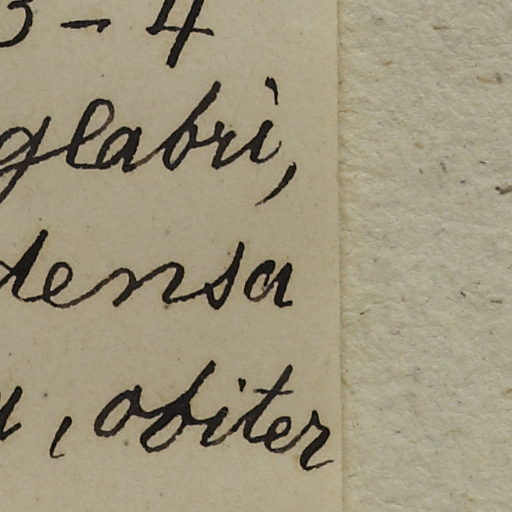 3-4
glabri,
densa
, obiter